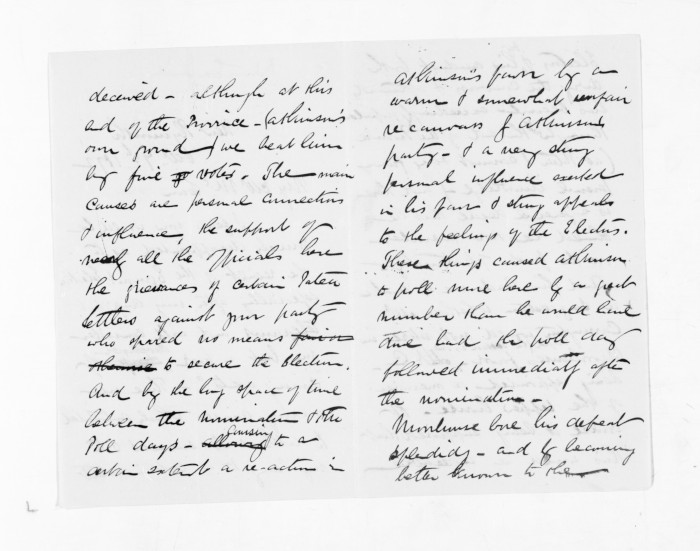 deceived – although at this
end of the Province – (Atkinson's
own ground) we beat him
by five votes. The main
causes are personal connections
& influence, the support of
nearly all the officials here
the grievances of certain Patea
settlers against your party
who spared no means
to secure the Election.
And by the long space of time
between the nomination & the
Poll days – causing to a
certain extent a re-action in
Atkinson's favor by a
warm & somewhat unfair
re canvass of Atkinson's
party – & a very strong
personal influence exerted
in his favor & strong appeals
to the feelings of the Electors.
These things caused Atkinson
to poll more here by a great
number than he would have
done had the poll day
followed immediately after
the nomination –
Moorhouse bore his defeat
splendidly – and by becoming
better known to the